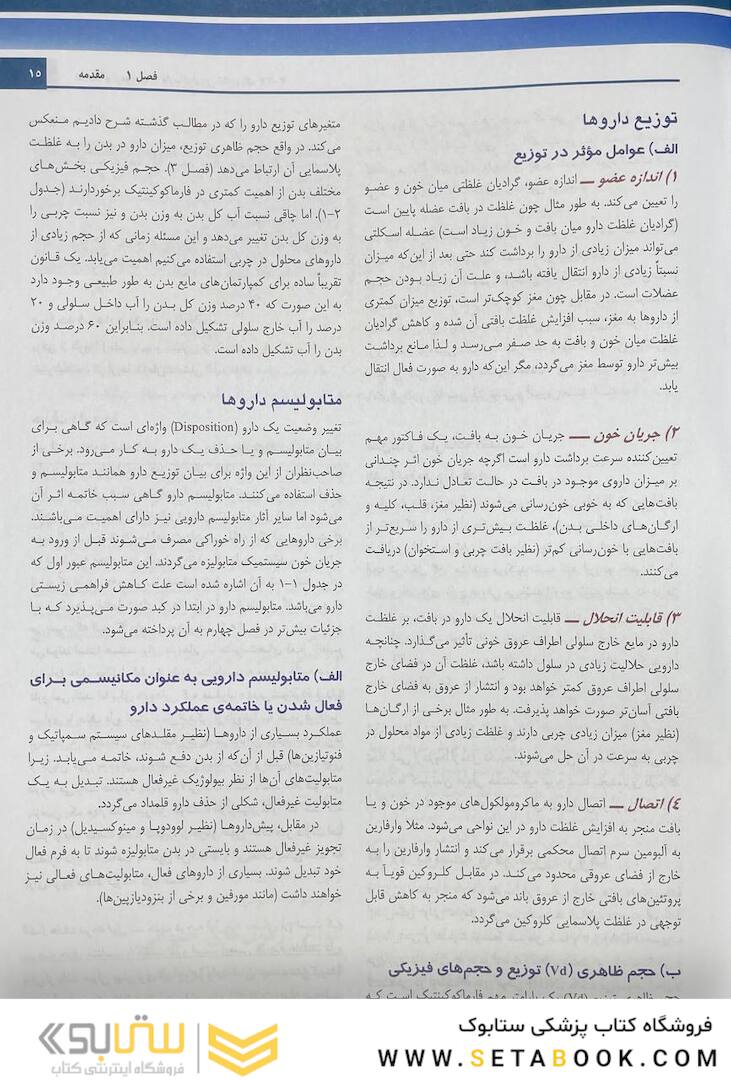 فصل ۱ مقدمه ۱۵
توزیع داروها
الف) عوامل مؤثر در توزیع
۱) اندازه عضو ــ اندازه عضو، گرادیان غلظتی میان خون و عضو
را تعیین می‌کند. به طور مثال چون غلظت در بافت عضله پایین است
(گرادیان غلظت دارو میان بافت و خون زیاد است) عضله اسکلتی
می‌تواند میزان زیادی از دارو را برداشت کند حتی بعد از این‌که میزان
نسبتاً زیادی از دارو انتقال یافته باشد، و علت آن زیاد بودن حجم
عضلات است. در مقابل چون مغز کوچک‌تر است، توزیع میزان کمتری
از داروها به مغز، سبب افزایش غلظت بافتی آن شده و کاهش گرادیان
غلظت میان خون و بافت به حد صفر می‌رسد و لذا مانع برداشت
بیش‌تر دارو توسط مغز می‌گردد، مگر این‌که دارو به صورت فعال انتقال
یابد.
۲) جریان خون ــ جریان خون به بافت، یک فاکتور مهم
تعیین‌کننده سرعت برداشت دارو است اگرچه جریان خون اثر چندانی
بر میزان داروی موجود در بافت در حالت تعادل ندارد. در نتیجه
بافت‌هایی که به خوبی خون‌رسانی می‌شوند (نظیر مغز، قلب، کلیه و
ارگان‌های داخلی بدن)، غلظت بیش‌تری از دارو را سریع‌تر از
بافت‌هایی با خون‌رسانی کم‌تر (نظیر بافت چربی و استخوان) دریافت
می‌کنند.
۳) قابلیت انحلال ــ قابلیت انحلال یک دارو در بافت، بر غلظت
دارو در مایع خارج سلولی اطراف عروق خونی تأثیر می‌گذارد. چنانچه
دارویی حلالیت زیادی در سلول داشته باشد، غلظت آن در فضای خارج
سلولی اطراف عروق کمتر خواهد بود و انتشار از عروق به فضای خارج
بافتی آسان‌تر صورت خواهد پذیرفت. به طور مثال برخی از ارگان‌ها
(نظیر مغز) میزان زیادی چربی دارند و غلظت زیادی از مواد محلول در
چربی به سرعت در آن حل می‌شوند.
۴) اتصال ــ اتصال دارو به ماکرومولکول‌های موجود در خون و یا
بافت منجر به افزایش غلظت دارو در این نواحی می‌شود. مثلا وارفارین
به آلبومین سرم اتصال محکمی برقرار می‌کند و انتشار وارفارین را به
خارج از فضای عروقی محدود می‌کند. در مقابل کلروکین قویاً به
پروتئین‌های بافتی خارج از عروق باند می‌شود که منجر به کاهش قابل
توجهی در غلظت پلاسمایی کلروکین می‌گردد.
ب) حجم ظاهری (Vd) توزیع و حجم‌های فیزیکی
حجم ظاهری توزیع (Vd) یک پارامتر مهم فارماکوکینتیک است که
متغیرهای توزیع دارو را که در مطالب گذشته شرح دادیم منعکس
می‌کند. در واقع حجم ظاهری توزیع، میزان دارو در بدن را به غلظت
پلاسمایی آن ارتباط می‌دهد (فصل ۳). حجم فیزیکی بخش‌های
مختلف بدن از اهمیت کمتری در فارماکوکینتیک برخوردارند (جدول
۲-۱). اما چاقی نسبت آب کل بدن به وزن بدن و نیز نسبت چربی را
به وزن کل بدن تغییر می‌دهد و این مسئله زمانی که از حجم زیادی از
داروهای محلول در چربی استفاده می‌کنیم اهمیت می‌یابد. یک قانون
تقریباً ساده برای کمپارتمان‌های مایع بدن به طور طبیعی وجود دارد
به این صورت که ۴۰ درصد وزن کل بدن را آب داخل سلولی و ۲۰
درصد را آب خارج سلولی تشکیل داده است. بنابراین ۶۰ درصد وزن
بدن را آب تشکیل داده است.
متابولیسم داروها
تغییر وضعیت یک دارو (Disposition) واژه‌ای است که گاهی برای
بیان متابولیسم و یا حذف یک دارو به کار می‌رود. برخی از
صاحب‌نظران از این واژه برای بیان توزیع دارو همانند متابولیسم و
حذف استفاده می‌کنند. متابولیسم دارو گاهی سبب خاتمه اثر آن
می‌شود اما سایر آثار متابولیسم دارویی نیز دارای اهمیت می‌باشند.
برخی داروهایی که از راه خوراکی مصرف می‌شوند قبل از ورود به
جریان خون سیستمیک متابولیزه می‌گردند. این متابولیسم عبور اول که
در جدول ۱-۱ به آن اشاره شده است علت کاهش فراهمی زیستی
دارو می‌باشد. متابولیسم دارو در ابتدا در کبد صورت می‌پذیرد که با
جزئیات بیش‌تر در فصل چهارم به آن پرداخته می‌شود.
الف) متابولیسم دارویی به عنوان مکانیسمی برای
فعال شدن یا خاتمه‌ی عملکرد دارو
عملکرد بسیاری از داروها (نظیر مقلدهای سیستم سمپاتیک و
فنوتیازین‌ها) قبل از آن‌که از بدن دفع شوند، خاتمه می‌یابد. زیرا
متابولیت‌های آن‌ها از نظر بیولوژیک غیرفعال هستند. تبدیل به یک
متابولیت غیرفعال، شکلی از حذف دارو قلمداد می‌گردد.
در مقابل، پیش‌داروها (نظیر لوودوپا و مینوکسیدیل) در زمان
تجویز غیرفعال هستند و بایستی در بدن متابولیزه شوند تا به فرم فعال
خود تبدیل شوند. بسیاری از داروهای فعال، متابولیت‌های فعالی نیز
خواهند داشت (مانند مورفین و برخی از بنزودیازپین‌ها).
فروشگاه کتاب پزشکی ستابوک
WWW.SETABOOK.COM
ستابوک
فروشگاه اینترنتی کتاب